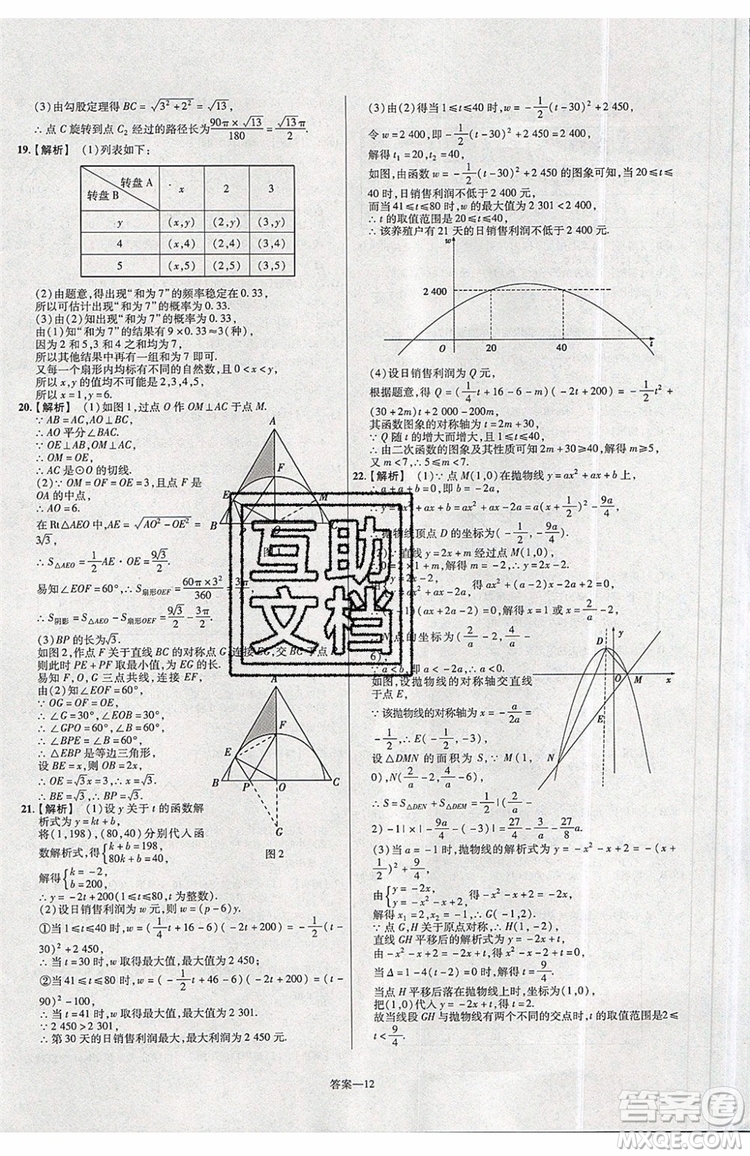 (3)由勾股定理得 BC = √(3²+2²) = √13,
∴ 点 C 旋转到点 C₂ 经过的路径长为 (90π×√13)/180 = (√13 π)/2.
19.【解析】 (1)列表如下:
转盘 A 转盘 B x 2 3
y (x,y) (2,y) (3,y)
4 (x,4) (2,4) (3,4)
5 (x,5) (2,5) (3,5)
(2)由题意,得出现“和为 7”的频率稳定在 0.33,
所以可估计出现“和为 7”的概率为 0.33.
(3)由(2)知出现“和为 7”的概率为 0.33,
由(1)知“和为 7”的结果有 9×0.33≈3(种),
因为 2 和 5,3 和 4 的和均为 7,
所以其他结果中再有一组和为 7.
又每一个扇形内均标有不同的自然数,
所以 x,y 的值均不可能为 2,3,4,5,
所以 x=1,y=6.
20.【解析】 (1)如图 1,过点 O 作 OM⊥AC 于点 M.
∵ AB=AC,AO⊥BC,
∴ AO 平分∠BAC.
∵ OE⊥AB,OM⊥AC,
∴ OM=OE,
∴ AC 是⊙O 的切线.
(2)∵ OM=OF=OE=3,且点 F 是
OA 的中点,
∴ AO=6.
在 Rt△AEO 中,AE=√(AO²-OE²)=
3√3,
∴ S△AEO = 1/2 AE·OE = 9√3/2.
易知∠EOF=60°,∴ S扇形OEF = (60π×3²)/360 = 3π/2,
∴ S阴影 = S△AEO - S扇形OEF = 9√3/2 - 3π/2.
(3)BP 的长为√3.
如图 2,作点 F 关于直线 BC 的对称点 G,连接 EG,交 BC 于点 P,
则此时 PE+PF 取最小值,为 EG 的长.
易知 F,O,G 三点共线,连接 EF,
∠EOF=60°,
∵ OG=OF=OE,
∴ ∠G=30°,
∴ ∠GPO=60°,
∴ ∠BPE=∠BPO=60°,
∴ △EBP 是等边三角形.
设 BE=x,则
∴ OE=√3x=3,
∴ x=√3,
∴ BP=BE=√3.
A F E B P O C G
图 2
21.【解析】 (1)设 y 关于 t 的函数解
析式为 y=kt+b,
将(1,198),(80,40)分别代入函
数解析式,得{k+b=198, 80k+b=40,
解得{k=-2, b=200,
∴ y=-2t+200(1≤t≤80,t 为整数).
(2)设日销售利润为 w,则 w=(p-6)y.
①当 1≤t≤40 时,w=(1/4 t+16-6)(-2t+200)=-1/2(t-
30)²+2 450,
∴ 当 t=30 时,w 取得最大值,最大值为 2 450.
②当 41≤t≤80 时,w=(-1/2 t+46-6)(-2t+200)=(t-
90)²-100,
∴ 当 t=41 时,w 取得最大值,最大值为 2 301.
∵ 2 450>2 301,
∴ 第 30 天的日销售利润最大,最大利润为 2 450 元.
(3)由(2)得当 1≤t≤40 时,w=-1/2(t-30)²+2 450,
令 w=2 400,即-1/2(t-30)²+2 450=2 400,
解得 t₁=20,t₂=40.
如图,由函数 w=-1/2(t-30)²+2 450 的图象可知,当 20≤t≤
40 时,日销售利润不低于 2 400 元,
而当 41≤t≤80 时,w 的最大值为 2 301<2 400,
∴ t 的取值范围是 20≤t≤40,
∴ 该养殖户有 21 天的日销售利润不低于 2 400 元.
w 2 400 O 20 40 t
(4)设日销售利润为 Q 元,
根据题意,得 Q=(1/4 t+16-6-m)(-2t+200)=-1/2 t²+
(30+2m)t+2 000-200m,
其函数图象的对称轴为直线 t=2m+30,
∵ Q 随 t 的增大而增大,且 1≤t≤40,
∴ 由二次函数的图象及其性质可知 2m+30≥40,解得 m≥5.
又 m<7,∴ 5≤m<7.
22.【解析】 (1)∵ 点 M(1,0)在抛物线 y=ax²+ax+b 上,
∴ a+a+b=0,∴ b=-2a,
∴ y=ax²+ax+b=ax²+ax-2a=a(x+1/2)²-9a/4,
∴ 抛物线顶点 D 的坐标为(-1/2,-9a/4).
(2)∵ 直线 y=2x+m 经过点 M(1,0),
6),
∵ a<b,∴ a<-2a,∴ a<0.
如图,设抛物线的对称轴交直线
于点 E,
∵ 该抛物线的对称轴为 x=-1/2,
y D O M x N
设△DMN 的面积为 S,
∴ S=S△DEN+S△DEM=1/2|(2/a-
2)-1|×|-9a/4-(-3)|=27/4-3/a-27a/8.
(3)当 a=-1 时,抛物线的解析式为 y=-x²-x+2=-(x+1/2)²+9/4,
由{y=-x²-x+2, y=-2x,
解得 x₁=2,x₂=-1,∴ G(-1,2).
∵ 点 G,H 关于原点对称,∴ H(1,-2).
直线 GH 平移后的解析式为 y=-2x+t,
由-x²-x+2=-2x+t,得 x²-x-2+t=0,
令 Δ=1-4(t-2)=0,得 t=9/4.
当点 H 平移后落在抛物线上时,坐标为(1,0),
把(1,0)代入 y=-2x+t,得 t=2,
故当线段 GH 与抛物线有两个不同的交点时,t 的取值范围是2≤
t<9/4.
答案—12
互助文档
答案圈
MXQE.COM